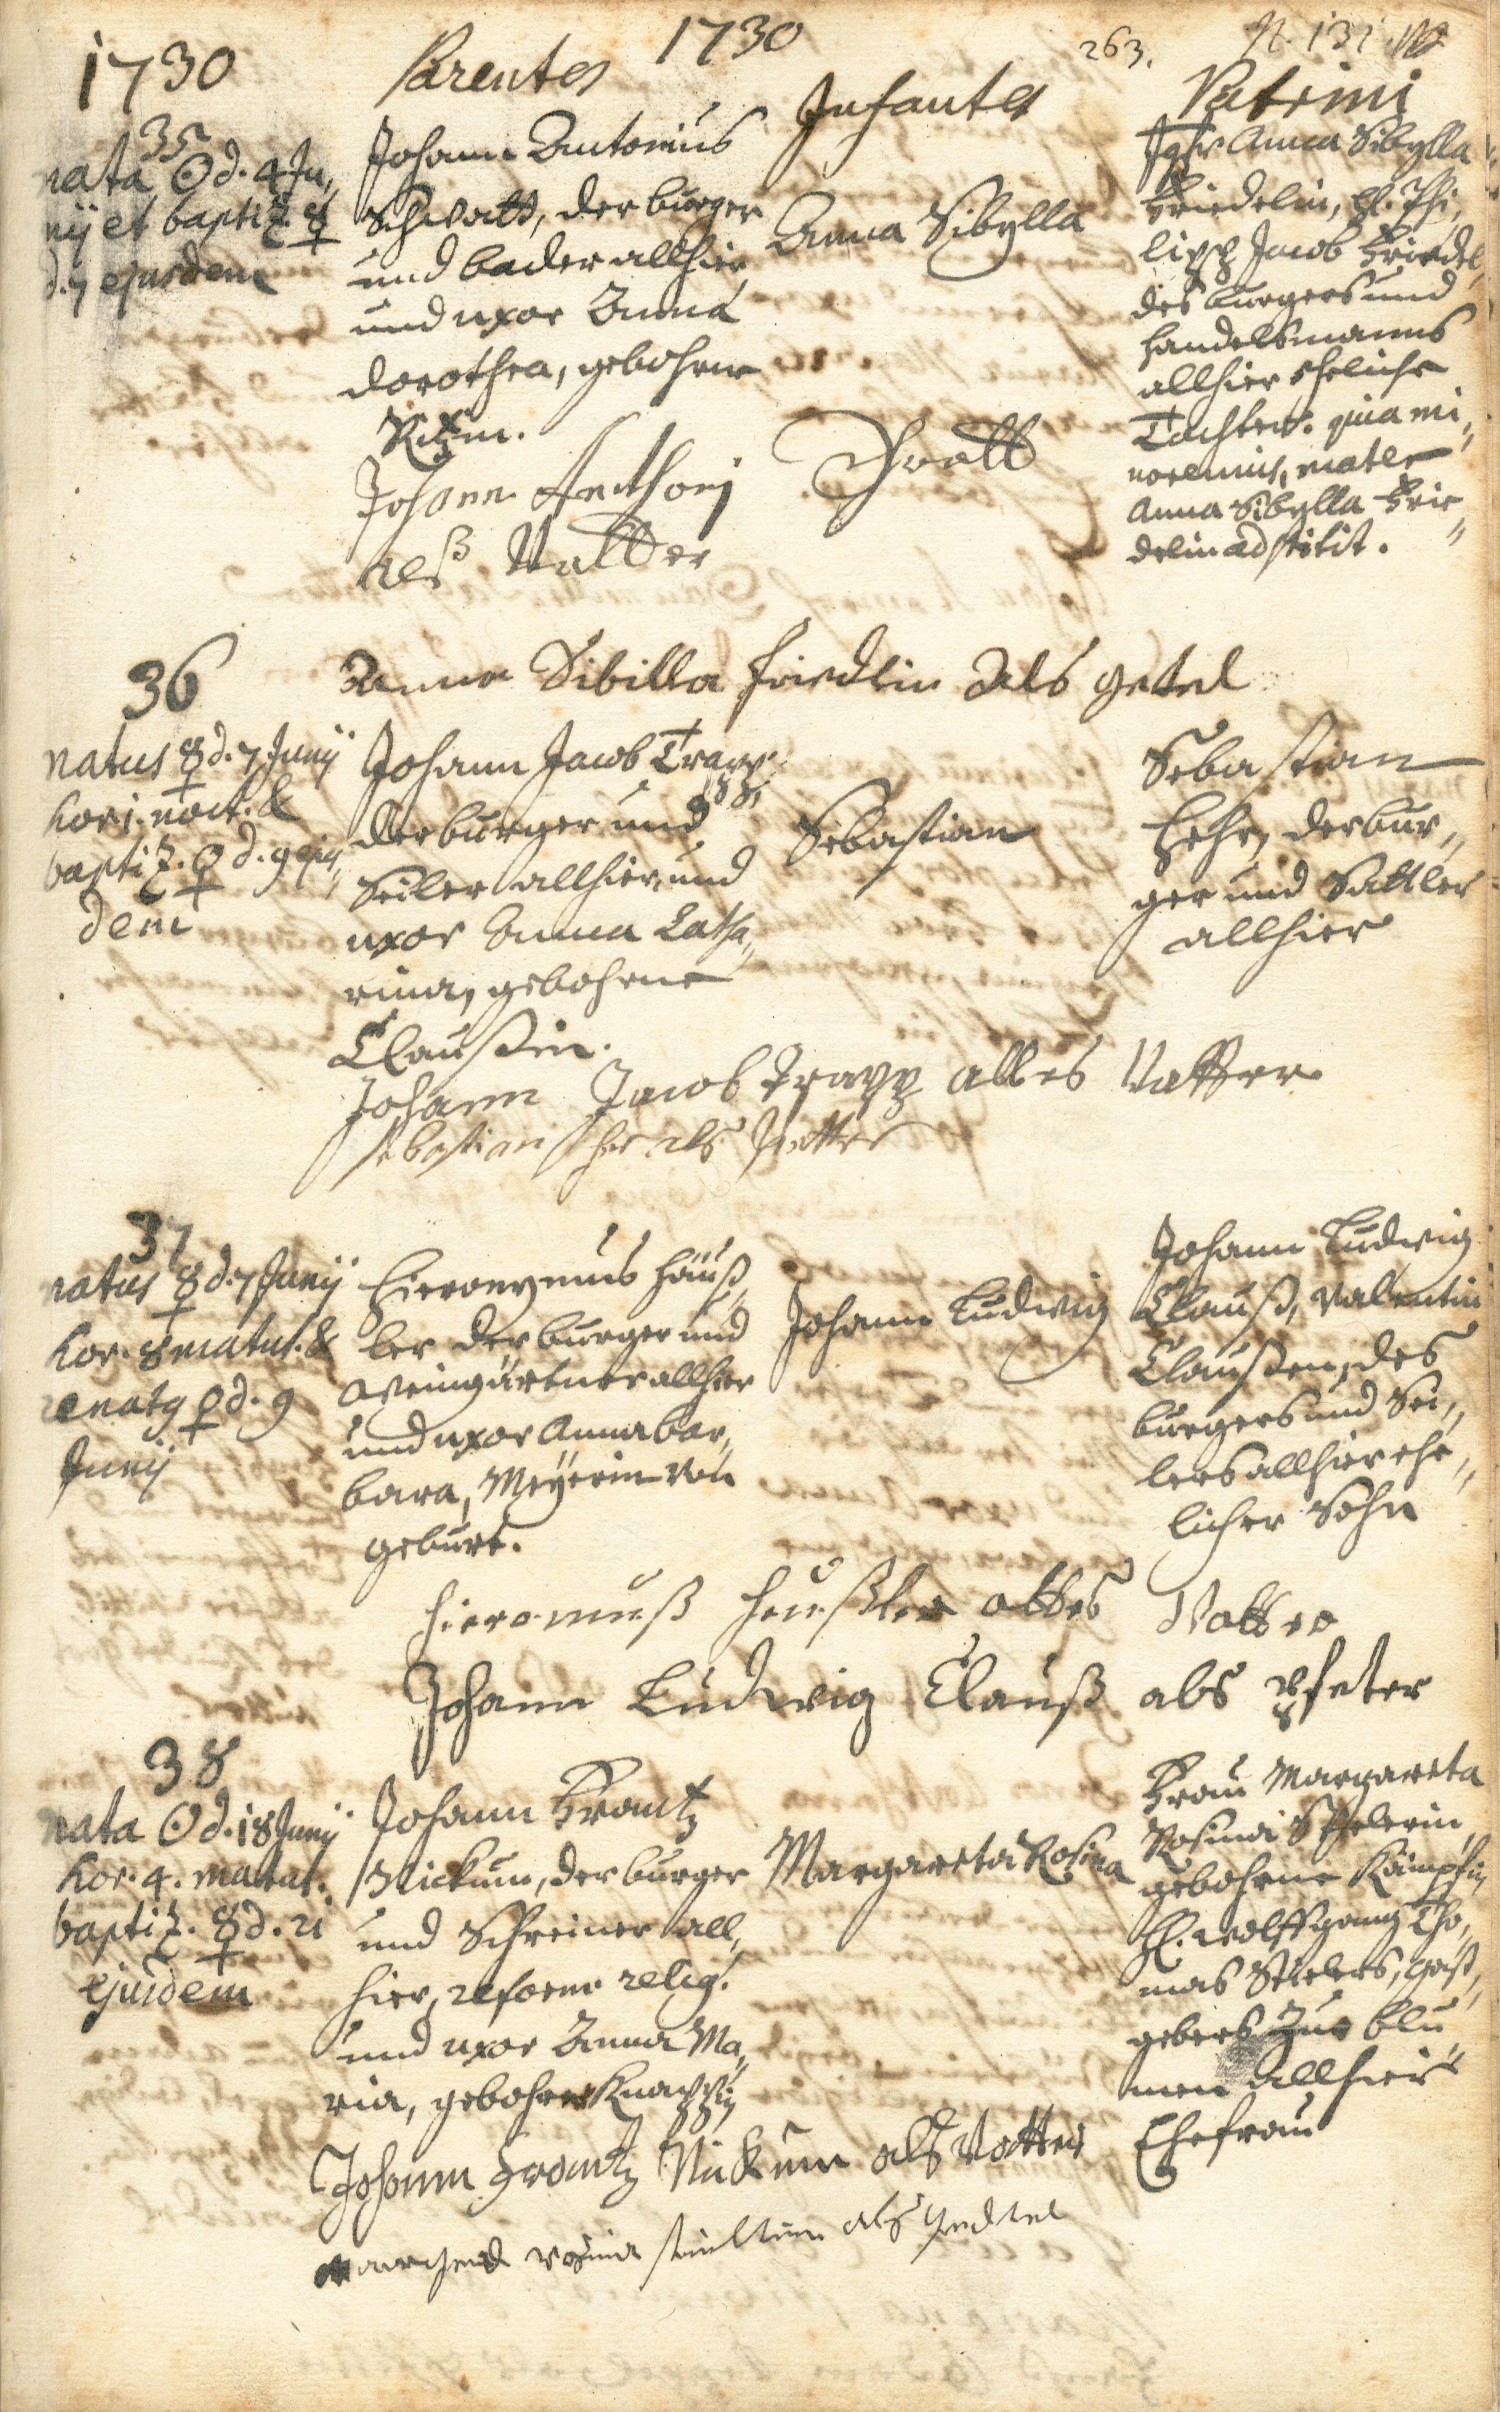 1730
Parentes
1730
Infantes
263.
N. 131
Patrini
35
nata ☉ d. 4 Ju,,
nij et baptiz. ☿
d. 7 ejusdem
Johann Antonius
Schwatt, der burger
und bader allhier
und uxor Anna
Dorothea, gebohrne
Johann Anthonj Schwatt
alß Vatter
Anna Sibylla
Jgfr Anna Sibylla
Friedelin, H. Phi,,
lipp Jacob Friedel,,
des burgers und
handelsmanns
allhier eheliche
Tochter. quia mi,,
norennis, mater
Anna Sibylla Frie,,
delin adstitit.
Anna Sibilla Friedlin Als getel
36
natus ☿ d. 7 Junij
hor 1. noct. &
baptiz. ♀ d. 9 ejus,,
dem
Johann Jacob Trapp
der burger und
Seiler allhier, und
uxor Anna Catha,,
rina, gebohrne
Claußin.
Sebastian
Sebastian
Hehr, der bur,,
ger und Sattler
allhier
Johann Jacob Trapp alles Vatter
sebastian her als
37
natus ☿ d. 7 Junij
hor. 8 matut. &
renatq ♀ d. 9
Junij
Hieronymus Häuß,,
ler der burger und
Weingärtner allhier
und uxor Anna bar,,
bara, Meÿerin von
geburt.
Johann Ludwig
Johann Ludwig
Clauß, Valentin
Claußen, des
burgers und Sei,,
lers allhier ehe,,
licher Sohn
hieromuß heußler alles Vatter
Johann Ludwig Clauß als pfeter
38
nata ☉ d. 18 Junij
hor. 4. matut.
baptiz. ☿ d. 21
ejusdem
Johann Frantz
Nickum, der burger
und Schreiner all,,
hier, reform relig.
und uxor Anna Ma,,
ria, gebohrne Knappin
Margareta Rosina
Frau Margareta
Rosina
gebohrne Kämpfin,
H. Wolffgang Tho,,
mas gast,,
gebers zur blu,,
men allhier
Ehefrau
Johann Frantz Nickum als Vatter
rosina als